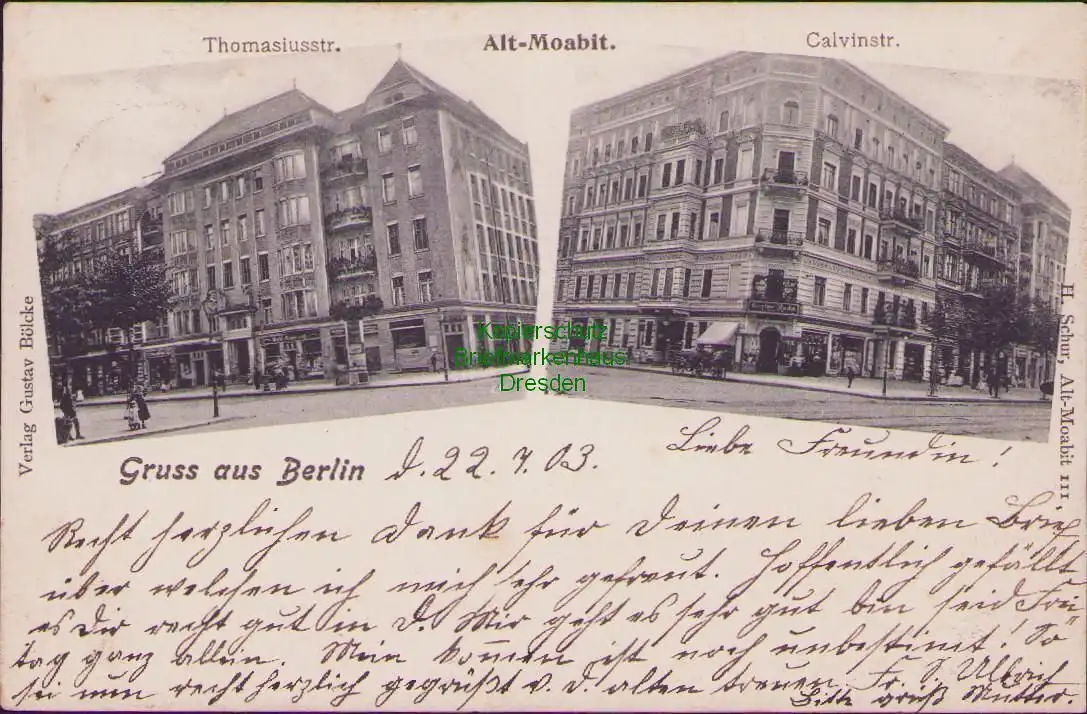 Thomasiusstr.
Alt-Moabit.
Calvinstr.
Verlag Gustav Bölcke
H. Schur, Alt-Moabit 111
Kopierschutz
Briefmarkenhaus
Dresden
Gruss aus Berlin d. 22. 7. 03.
Liebe Freundin!
Recht herzlichen Dank für Deinen lieben Brief
über welchen ich mich sehr gefreut. Hoffentlich gefällt
es Dir recht gut in D. Mir geht es sehr gut bin seid Frei-
tag ganz allein. Mein kommen ist noch unbestimt! So
sei nun recht herzlich gegrüßt v. d. alten treuen Fr. S. Ullrich
Bitte grüß Mutter.